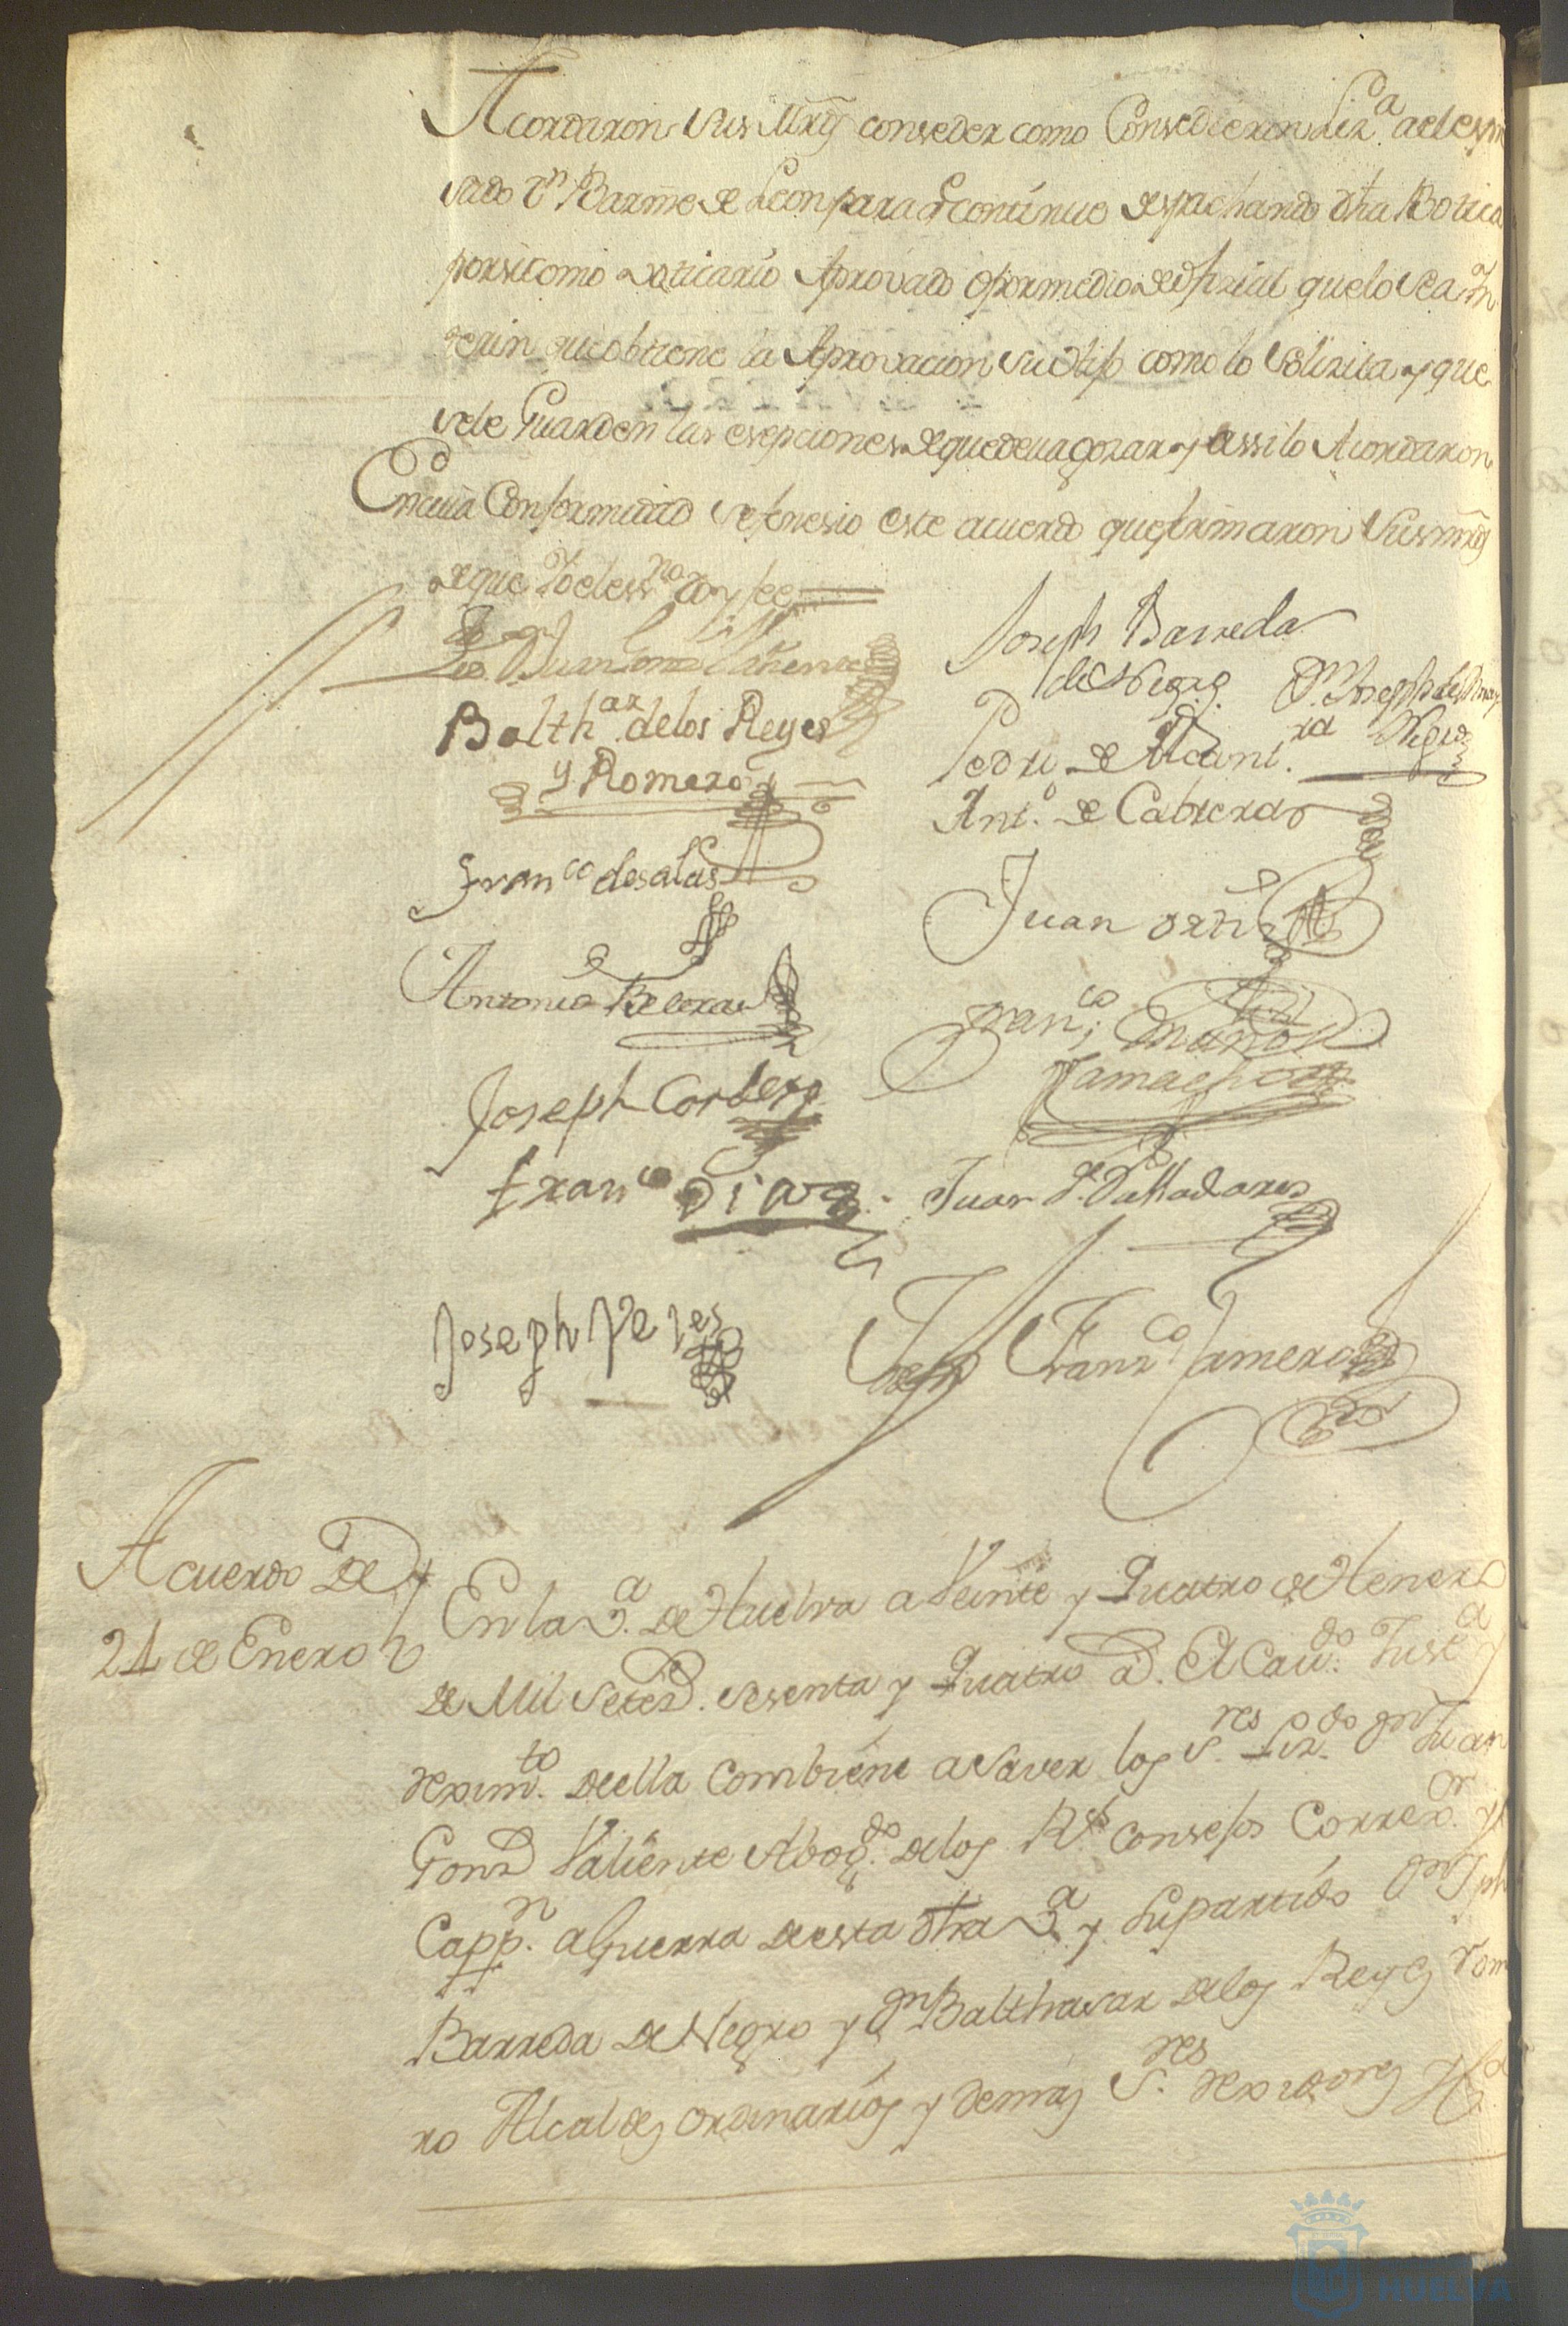 Acordaron sus Mrds conseder como Consedieron Liz.a a el espre
sado Dn Barme de Leon para q continue despachando dha Botica
por si como Boticario Aprovado o por medio de ofizial que lo sea In
terin que obtiene la Aprovacion su hijo como lo solizita y que
se le Guarden las esepciones de que deva gozar y assi lo Acordaron
En cuia Conformidad se fenesio este acuerdo que firmaron sus mrds
de que Yo el essno doy fee
Joseph Barreda
de Negro
Balthar de los Reyes
y Romero
Pedro de Alcant.ra
Ant.o de Cabrera
Franco de salas
Juan ortiz
Antonio Belora
Franco
Joseph Cordero
Franco Diaz
Juan de Valladares
Joseph Reyes
Franco Camero
Acuerdo De
24 de Enero
En la V.a de Huelva a Veinte y Quatro de Henero
de Mil Setez.s sesenta y Quatro a.s El Cav.do Just.a y
rexim.to de ella Combiene a saver los S.res Liz.do Dn Juan
Gonz Valiente Abog.do de los R.s Consejos Correx.or y
Capp.n a Guerra de esta dha V.a y su partido Dn Jph
Barreda de Negro y Dn Balthasar de los Reyes Rome
ro Alcaldes ordinarios y demas S.res rexidores
HUELVA